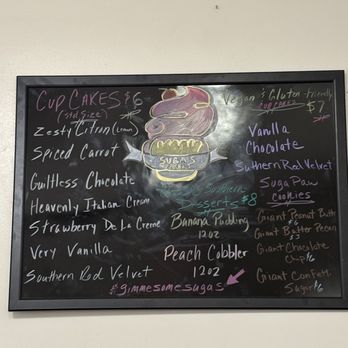 CUP CAKES $6
(std size)
Zesty Citron (Lemon)
Spiced Carrot
Guiltless Chocolate
Heavenly Italian Cream
Strawberry De La Creme
Very Vanilla
Southern Red Velvet
SUGA'S
Southern
Desserts $8
Banana Pudding
12oz
Peach Cobbler
12oz
#gimmesomesugas
Vegan & Gluten friendly
CUPCAKES $7
Vanilla
Chocolate
Suthern Red Velvet
Suga Paw
cookies
Giant Peanut Butt
Giant Butter Pecan
Giant Chocolate
Chip
Giant Confetti
Sugar